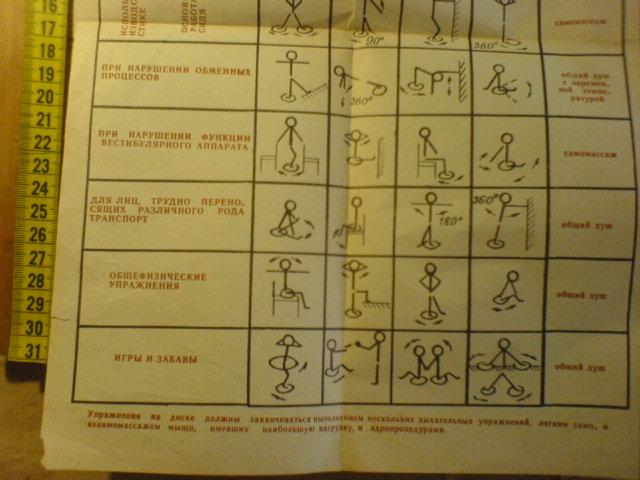 16
17
18
19
20
21
22
23
24
25
26
27
28
29
30
31
ИСПОЛЬ
ИЗВОДС
СТИКЕ
ОСНОВ
РАБОТА
СИДЯ
90°
360°
самомассаж
ПРИ НАРУШЕНИИ ОБМЕННЫХ
ПРОЦЕССОВ
360°
общий душ
с перемен.
ной темпе.
ратурой
ПРИ НАРУШЕНИИ ФУНКЦИИ
ВЕСТИБУЛЯРНОГО АППАРАТА
самомассаж
ДЛЯ ЛИЦ, ТРУДНО ПЕРЕНО.
СЯЩИХ РАЗЛИЧНОГО РОДА
ТРАНСПОРТ
180°
360°
общий душ
ОБЩЕФИЗИЧЕСКИЕ
УПРАЖНЕНИЯ
общий душ
ИГРЫ И ЗАБАВЫ
общий душ
Упражнения на диске должны заканчиваться выполнением нескольких дыхательных упражнений, легким само. и
взаимомассажем мышц, имевших наибольшую нагрузку, и гидропроцедурами.